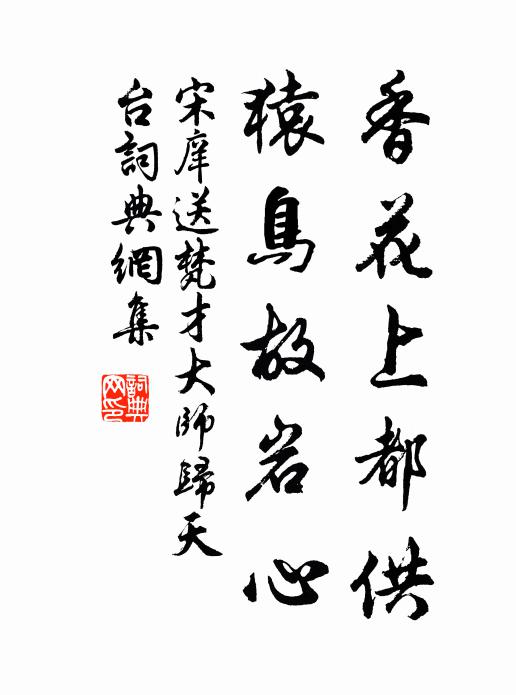 香花上都供
猿鳥故岩心
宋庠送梵才大師歸天
台詞典網集
詞典
网印